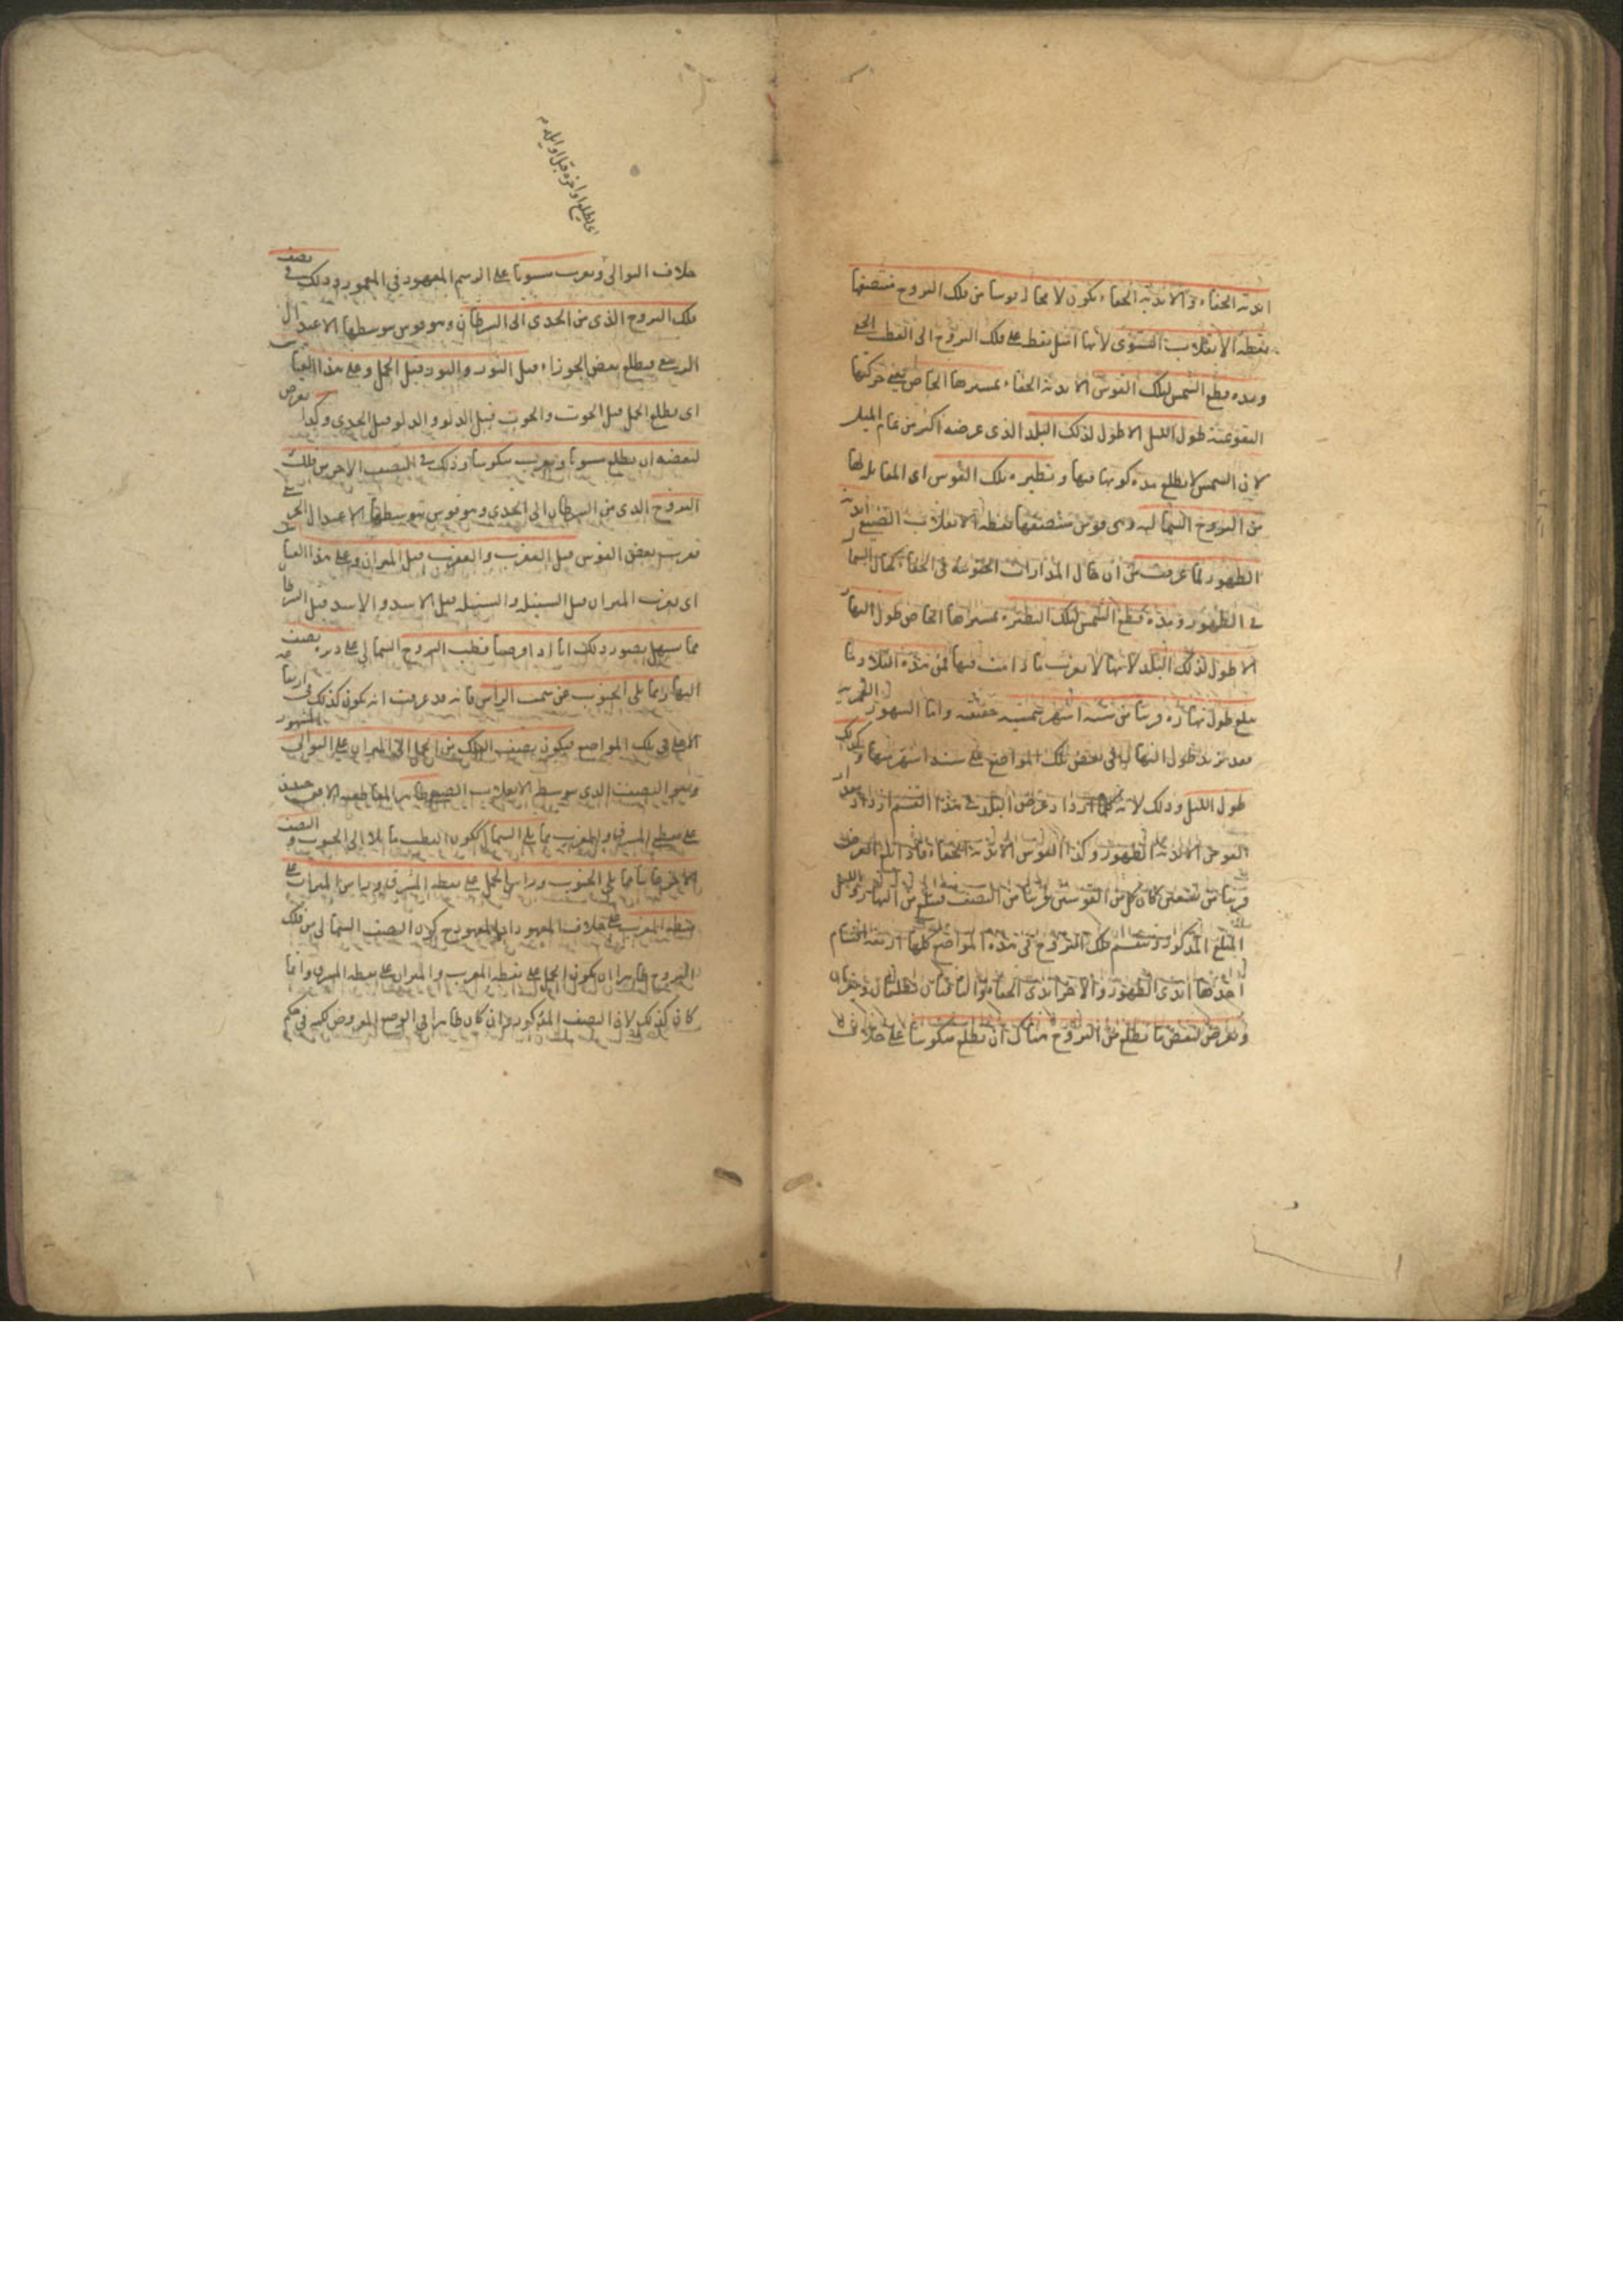 ابدية الخفاء و الابدية الخفاء تكون لا محالة قوسا من فلك البروج منتصفها
نقطة الانقلاب الشتوى لانها اميل نقط على فلك البروج الى القطب الخفى
ومدة قطع الشمس لتلك القوس الابدية الخفاء بمسيرها الخاص يعنى حركتها
التقويمية طول الليل الاطول لذلك البلد الذى عرضه اكثر من تمام الميل
لان الشمس لا تطلع مدة كونها فيها و نظيره تلك القوس اى المقابل لها
من البروج الشمالية وهى قوس منتصفها نقطة الانقلاب الصيفى ابدية
الظهور لما عرفت من ان حال المدارات الجنوبية فى الخفاء كحال الشمالية
فى الظهور ومدة قطع الشمس لتلك النظيرة بمسيرها الخاص طول النهار
الاطول لذلك البلد لانها لا تغرب ما دامت فيها فمن هذه البلاد ما
يبلغ طول نهاره قريبا من ستة اشهر شمسية حقيقية واما الشهور القمرية
فقد يزيد طول النهار فى بعض تلك المواضع على ستة اشهر منها وكذلك
طول الليل وذلك لانه كلما ازداد عرض البلد فى هذا القسم ازداد بعد
القوس الابدية الظهور وكذا القوس الابدية الخفاء فاذا بلغ العرض
قريبا من تسعين كان كل من القوسين قريبا من النصف فيبلغ من النهار والليل
المبلغ المذكور وينقسم فلك البروج فى هذه المواضع كلها اربعة اقسام
احدها ابدى الظهور والاخر ابدى الخفاء والباقيان يطلعان ويغربان
ويعرض لبعض ما يطلع من البروج هناك ان يطلع منكوسا على خلاف
اى يطلع اواخره قبل اوايله
خلاف التوالى ويغرب مستويا على الرسم المعهود فى المعمورة وذلك فى نصف
فلك البروج الذى من الجدى الى السرطان وهو قوس يتوسطها الاعتدال
الربيعى فيطلع بعض الجوزاء قبل الثور والثور قبل الحمل وعلى هذا القياس
اى يطلع الحمل قبل الحوت والحوت قبل الدلو والدلو قبل الجدى وكذا يعرض
لبعضه ان يطلع مستويا ويغرب منكوسا وذلك فى النصف الاخر من فلك
البروج الذى من السرطان الى الجدى وهو قوس يتوسطها الاعتدال الخريفى
فيغرب بعض القوس قبل العقرب والعقرب قبل الميزان وعلى هذا القياس
اى يغرب الميزان قبل السنبلة والسنبلة قبل الاسد والاسد قبل السرطان
مما يسهل تصور ذلك انا اذا فرضنا قطب البروج الشمالى على دايرة نصف
النهار مما يلى الجنوب عن سمت الراس فانه قد عرفت انه يكون كذلك فى ارتفاعه
الاعلى فى تلك المواضع فيكون نصف الفلك من الحمل الى الميزان على التوالى المشهور
وهو النصف الذى يتوسطه الانقلاب الصيفى ظاهرا لمقاطعته الافق حينئذ
على نقطتى المشرق والمغرب مما يلى الشمال لكون القطب مايلا الى الجنوب والنصف
الاخر خافيا مما يلى الجنوب وراس الحمل على نقطة المشرق وراس الميزان على
نقطة المغرب على خلاف المعهود اذ المعهود حين كون النصف الشمالى من فلك
البروج ظاهرا ان يكون الحمل على نقطة المغرب والميزان على نقطة المشرق وانما
كان كذلك لان النصف المذكور وان كان ظاهرا فى الوضع المفروض لكنه فى حكم